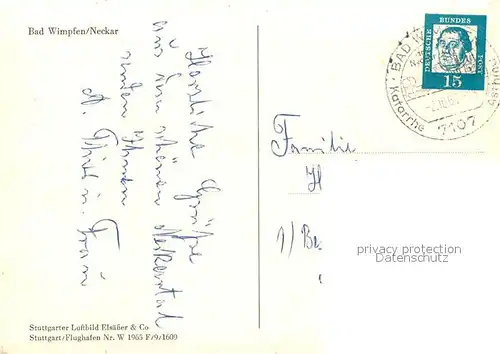 Bad Wimpfen/Neckar
Herzliche Grüße
aus dem schönen Neckartal
senden Ihnen
A. u. Frau
DEUTSCHE BUNDES POST
15
BAD
Katarrhe
7107
Familie
H
1/Be
privacy protection
www.ansichtskarten-center.de
Stuttgarter Luftbild Elsäßer & Co
Stuttgart/Flughafen Nr. W 1965 F/9/1609